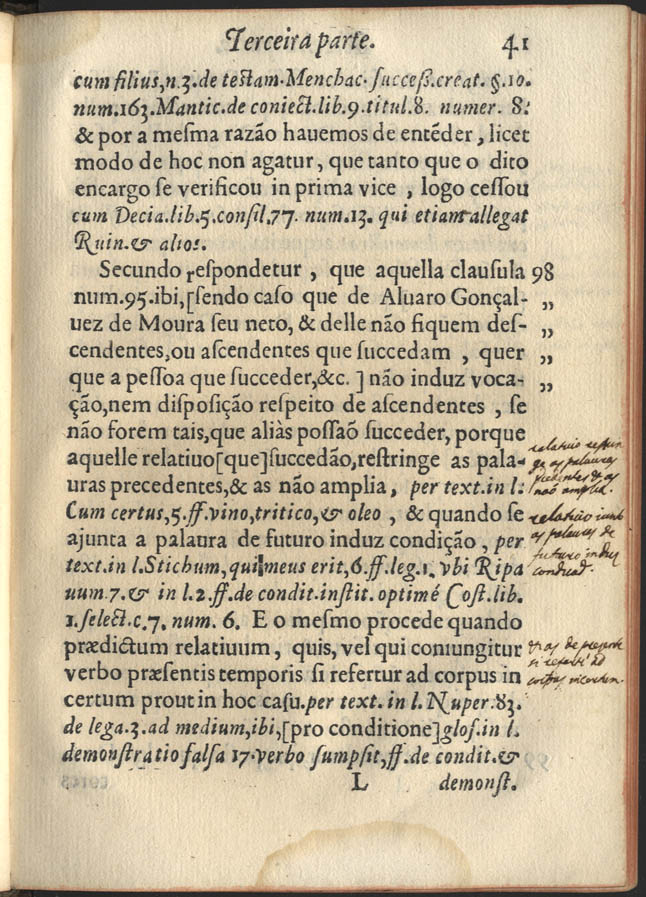 Terceira parte. 41
cum filius,n.3.de testam.Menchac.ſucceſſ.creat. §.10.
num.163.Mantic.de coniect.lib.9.titul.8. numer. 8.
& por a meſma razão hauemos de entẽder, licet
modo de hoc non agatur, que tanto que o dito
encargo ſe verificou in prima vice, logo ceſſou
cum Decia.lib.5.conſil.77. num.13. qui etiam allegat
Ruin.& alios.
Secundo reſpondetur, que aquella clauſula 98
num.95.ibi,[ſendo caſo que de Aluaro Gonçal- „
uez de Moura ſeu neto, & delle não fiquem deſ- „
cendentes,ou aſcendentes que ſuccedam, quer „
que a peſſoa que ſucceder,&c. ] não induz voca- „
ção,nem diſpoſição reſpeito de aſcendentes, ſe
não forem tais,que aliàs poſſaõ ſucceder, porque
aquelle relatiuo[que]ſuccedão,reſtringe as pala-
uras precedentes,& as não amplia, per text.in l.
Cum certus,5.ff.vino,tritico,& oleo, & quando ſe
ajunta a palaura de futuro induz condição, per
text.in l.Stichum,qui meus erit,6.ff.leg.1. vbi Ripa
uum.7.& in l.2.ff.de condit.inſtit. optimé Coſt.lib.
1.ſelect.c.7. num. 6. E o meſmo procede quando
prædictum relatiuum, quis, vel qui coniungitur
verbo præſentis temporis ſi refertur ad corpus in
certum prout in hoc caſu.per text. in l. Nuper.83.
de lega.3.ad medium,ibi,[pro conditione]gloſ.in l.
demonſtratio falſa 17.verbo ſumpſit,ff.de condit.&
L demonſt.
relatiuo
as palauras
não amplia.
relatiuo
as palauras de
futuro induz
& as de presente
si ad
corpus